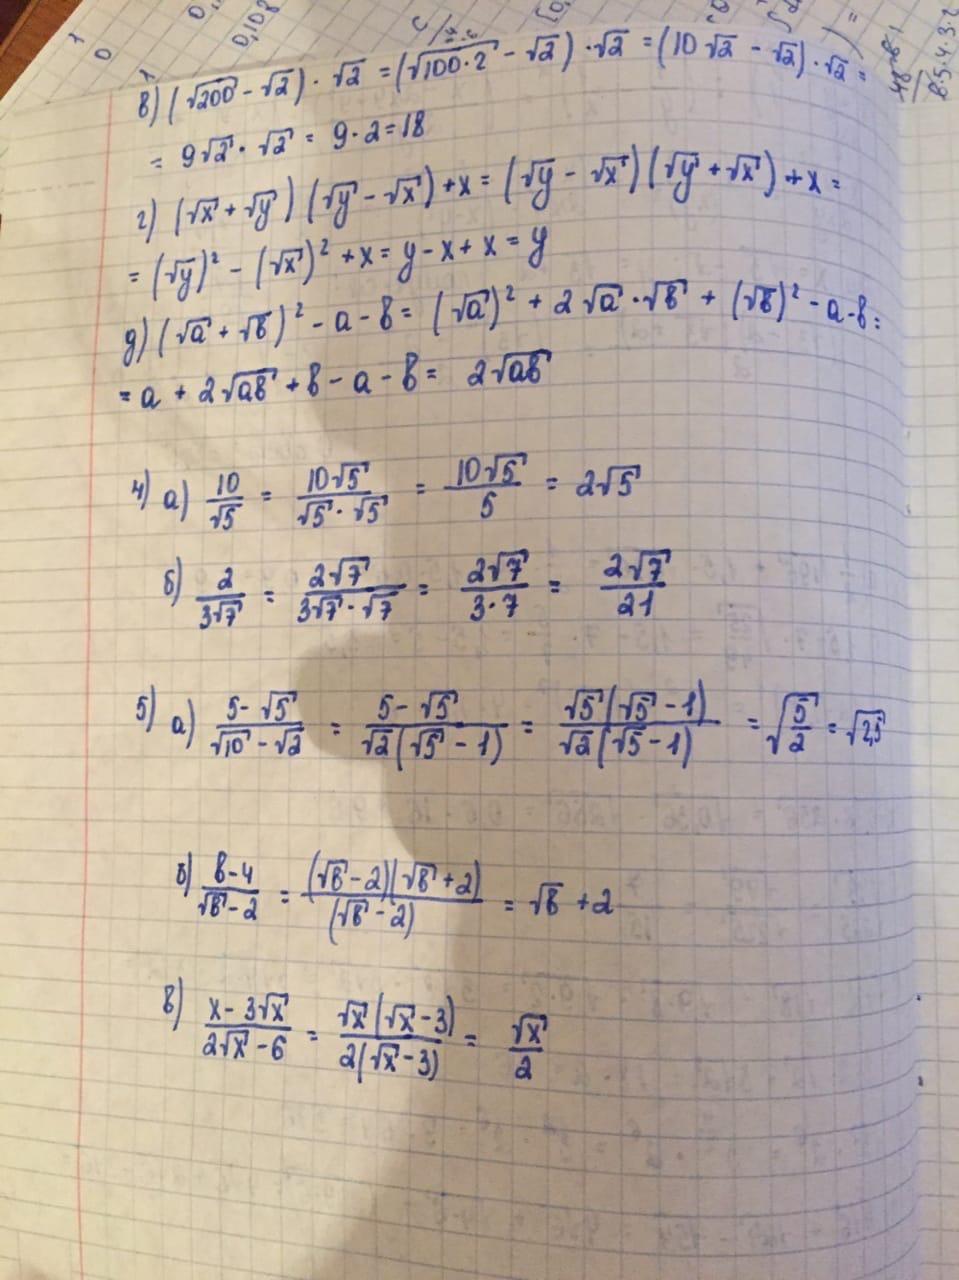 в) (√200 - √2) · √2 = (√100·2 - √2) · √2 = (10√2 - √2) · √2 =
= 9√2 · √2 = 9·2 = 18
г) (√x + √y) (√y - √x) + x = (√y - √x) (√y + √x) + x =
= (√y)² - (√x)² + x = y - x + x = y
д) (√a + √в)² - a - в = (√a)² + 2√a · √в + (√в)² - a - в =
= a + 2√aв + в - a - в = 2√aв
4) а) 10/√5 = 10√5/√5·√5 = 10√5/5 = 2√5
б) 2/3√7 = 2√7/3√7·√7 = 2√7/3·7 = 2√7/21
5) а) 5-√5/√10-√2 = 5-√5/√2(√5-1) = √5(√5-1)/√2(√5-1) = √5/2 = √2,5
б) в-4/√в-2 = (√в-2)(√в+2)/(√в-2) = √в + 2
в) x-3√x/2√x-6 = √x(√x-3)/2(√x-3) = √x/2